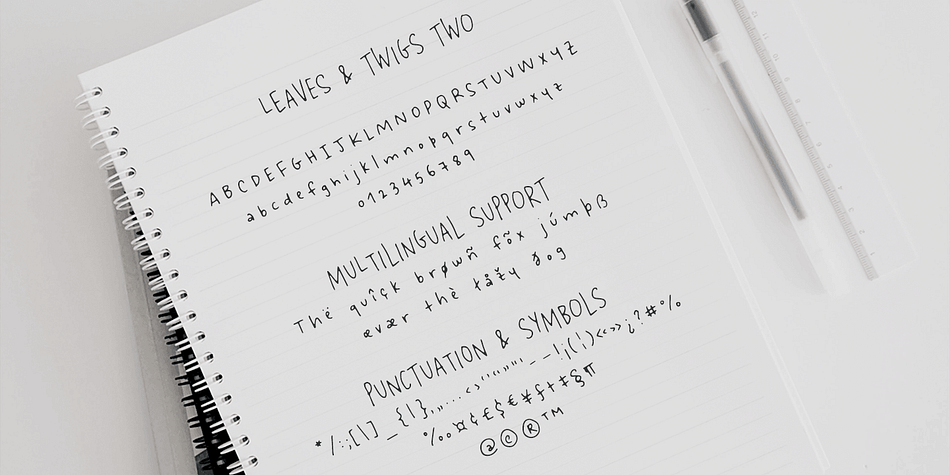 LEAVES & TWIGS TWO
ABCDEFGHIJKLMNOPQRSTUVWXYZ
abcdefghijklmnopqrstuvwxyz
0123456789
MULTILINGUAL SUPPORT
Thë quîçk brøwñ fõx júmþß
œvær thè łåžy ðog
PUNCTUATION & SYMBOLS
* / : ; [ \ ] _ { | } , „ … < > " " ' ' - – ! ¡ ( ¦ ) « » ¿ ? # %
‰ ¤ ¢ £ $ € ¥ ƒ † ‡ § ¶
@ © ® ™